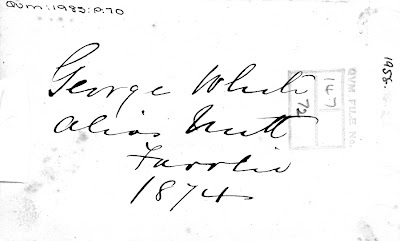 QVM:1985:P.70
1958.
George White
alias Nutt
1874
QVM FILE No.
147
72